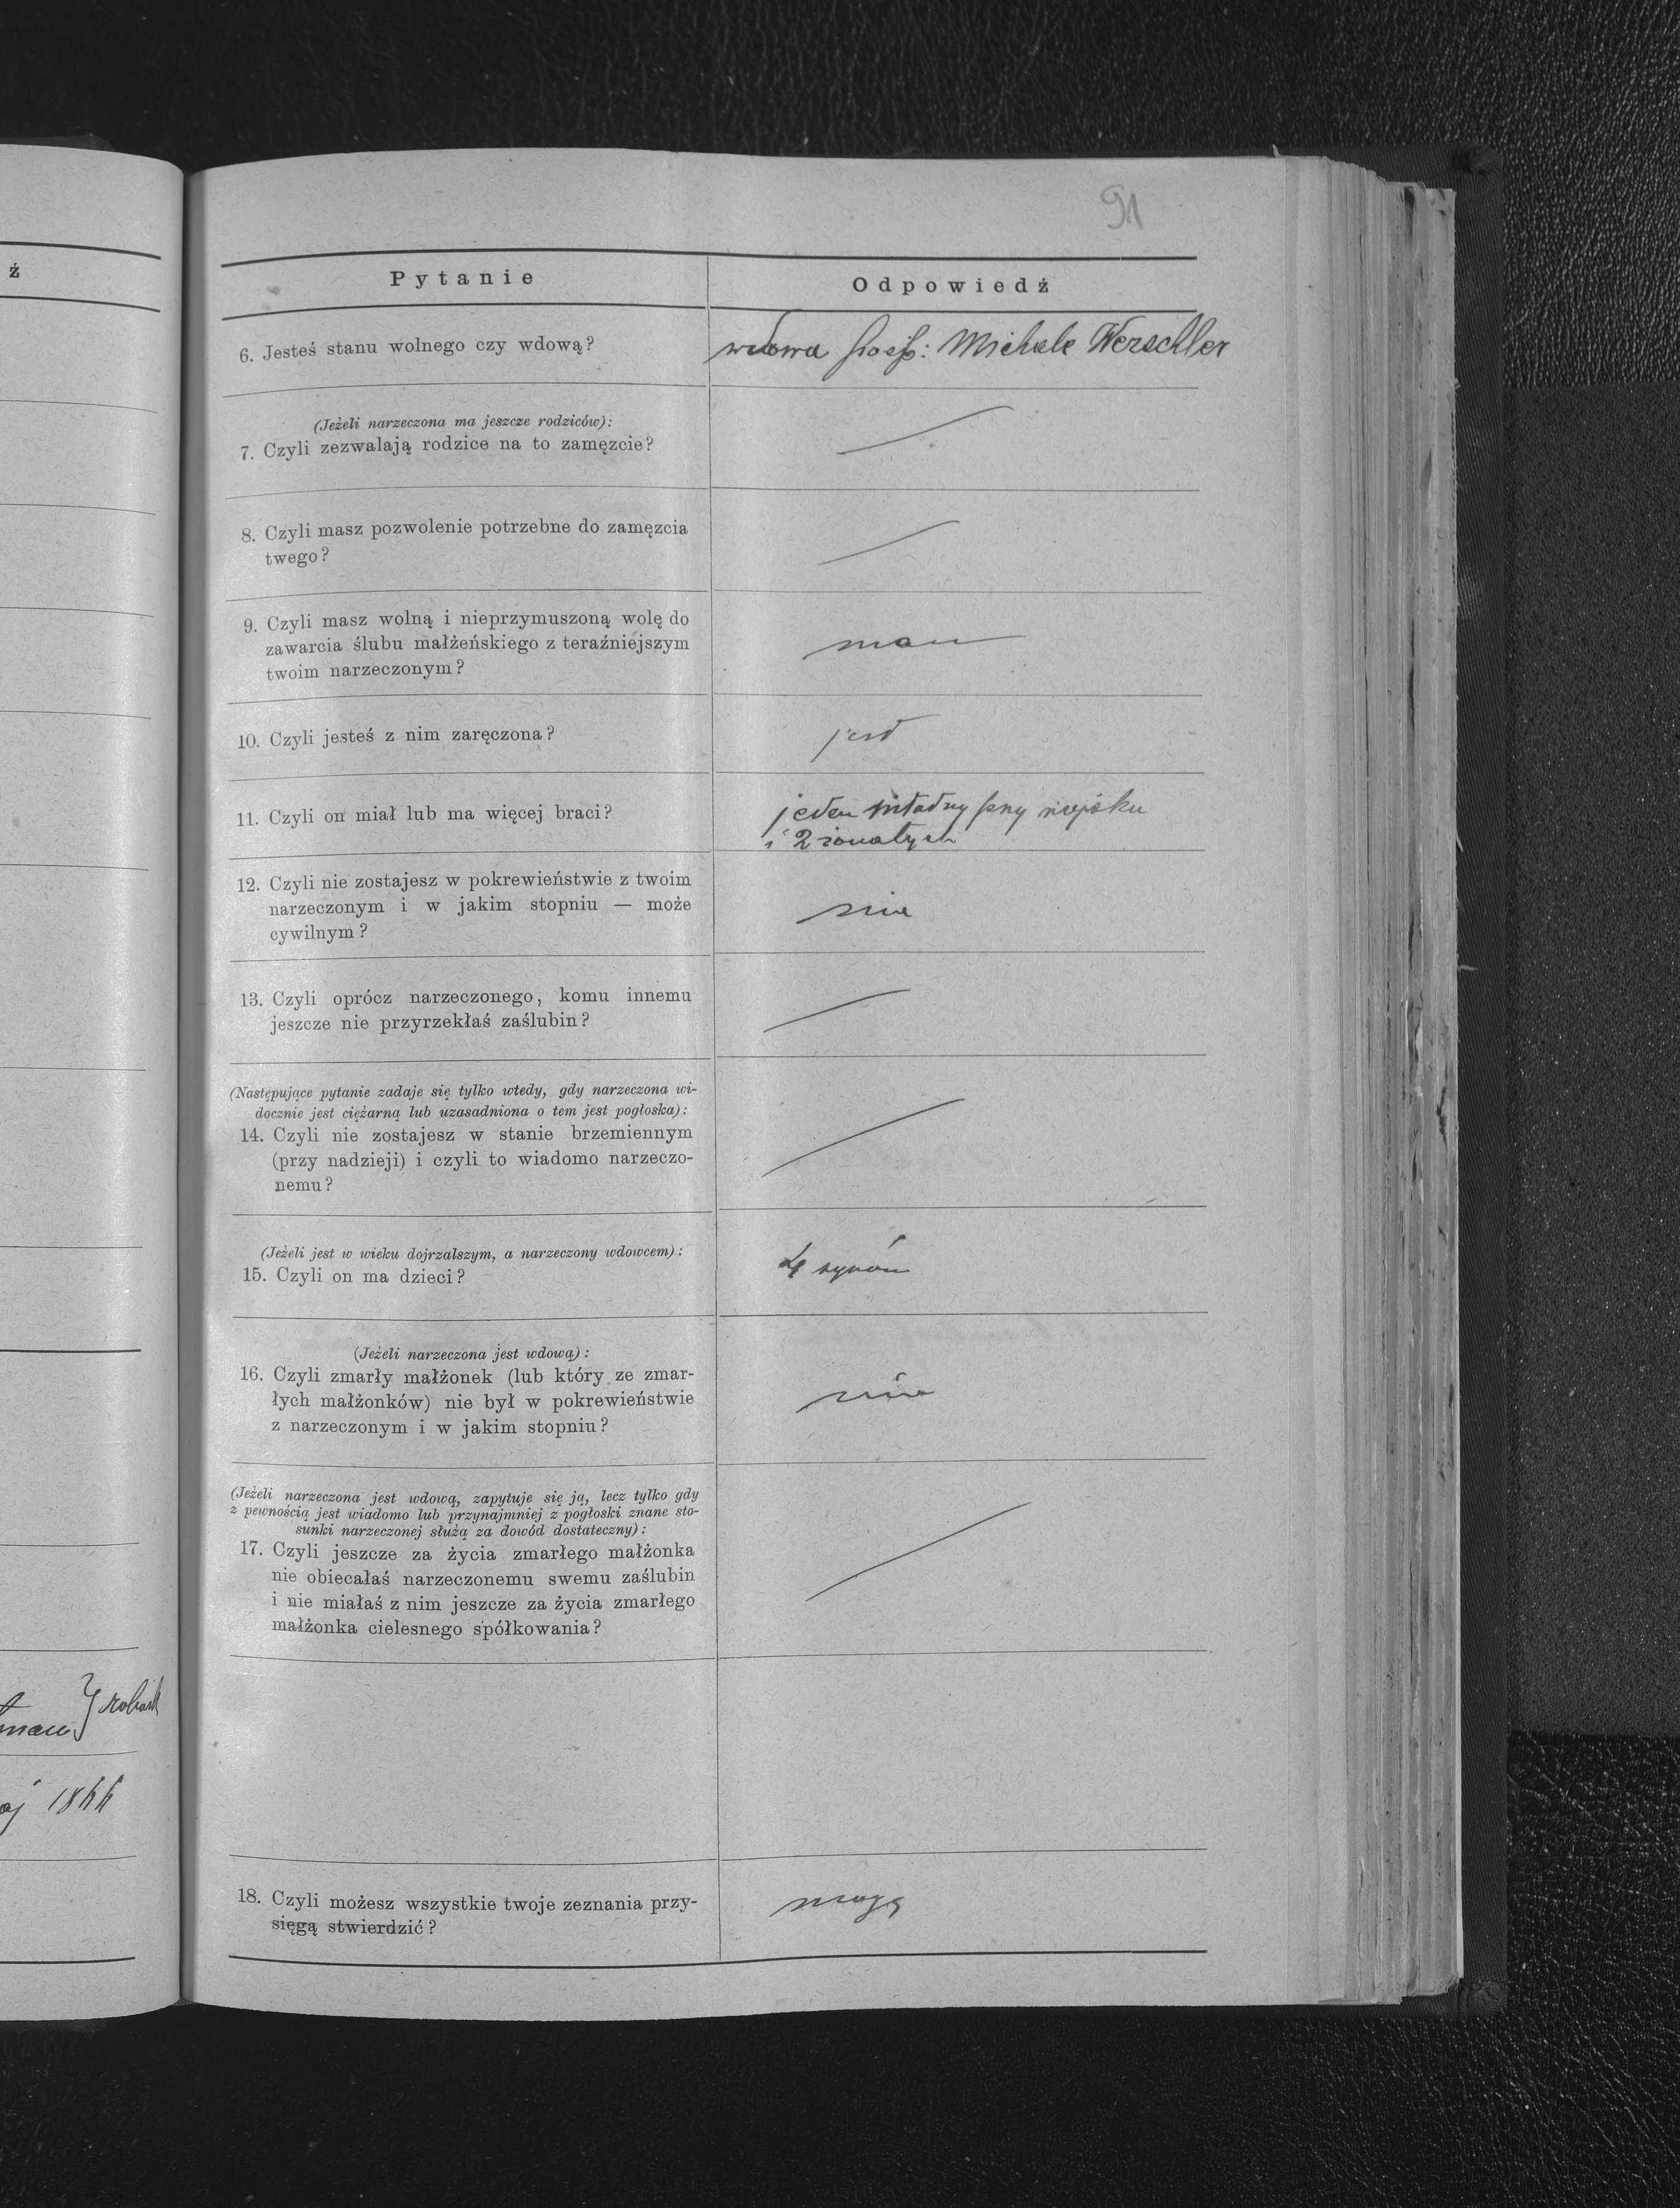 91
ź
Pytanie
Odpowiedź
6. Jesteś stanu wolnego czy wdową?
wdowa Michale Werschler
(Jeżeli narzeczona ma jeszcze rodziców):
7. Czyli zezwalają rodzice na to zamęzcie?
8. Czyli masz pozwolenie potrzebne do zamęzcia
twego?
9. Czyli masz wolną i nieprzymuszoną wolę do
zawarcia ślubu małżeńskiego z teraźniejszym
twoim narzeczonym?
mam
10. Czyli jesteś z nim zaręczona?
jest
11. Czyli on miał lub ma więcej braci?
jeden młodszy przy wojsku
i 2 żonatych
12. Czyli nie zostajesz w pokrewieństwie z twoim
narzeczonym i w jakim stopniu — może
cywilnym?
nie
13. Czyli oprócz narzeczonego, komu innemu
jeszcze nie przyrzekłaś zaślubin?
(Następujące pytanie zadaje się tylko wtedy, gdy narzeczona wi-
docznie jest ciężarną lub uzasadniona o tem jest pogłoska):
14. Czyli nie zostajesz w stanie brzemiennym
(przy nadzieji) i czyli to wiadomo narzeczo-
nemu?
(Jeżeli jest w wieku dojrzalszym, a narzeczony wdowcem):
15. Czyli on ma dzieci?
4 synów
(Jeżeli narzeczona jest wdową):
16. Czyli zmarły małżonek (lub który ze zmar-
łych małżonków) nie był w pokrewieństwie
z narzeczonym i w jakim stopniu?
nie
(Jeżeli narzeczona jest wdową, zapytuje się ją, lecz tylko gdy
z pewnością jest wiadomo lub przynajmniej z pogłoski znane sto-
sunki narzeczonej służą za dowód dostateczny):
17. Czyli jeszcze za życia zmarłego małżonka
nie obiecałaś narzeczonemu swemu zaślubin
i nie miałaś z nim jeszcze za życia zmarłego
małżonka cielesnego spółkowania?
18. Czyli możesz wszystkie twoje zeznania przy-
sięgą stwierdzić?
mogę